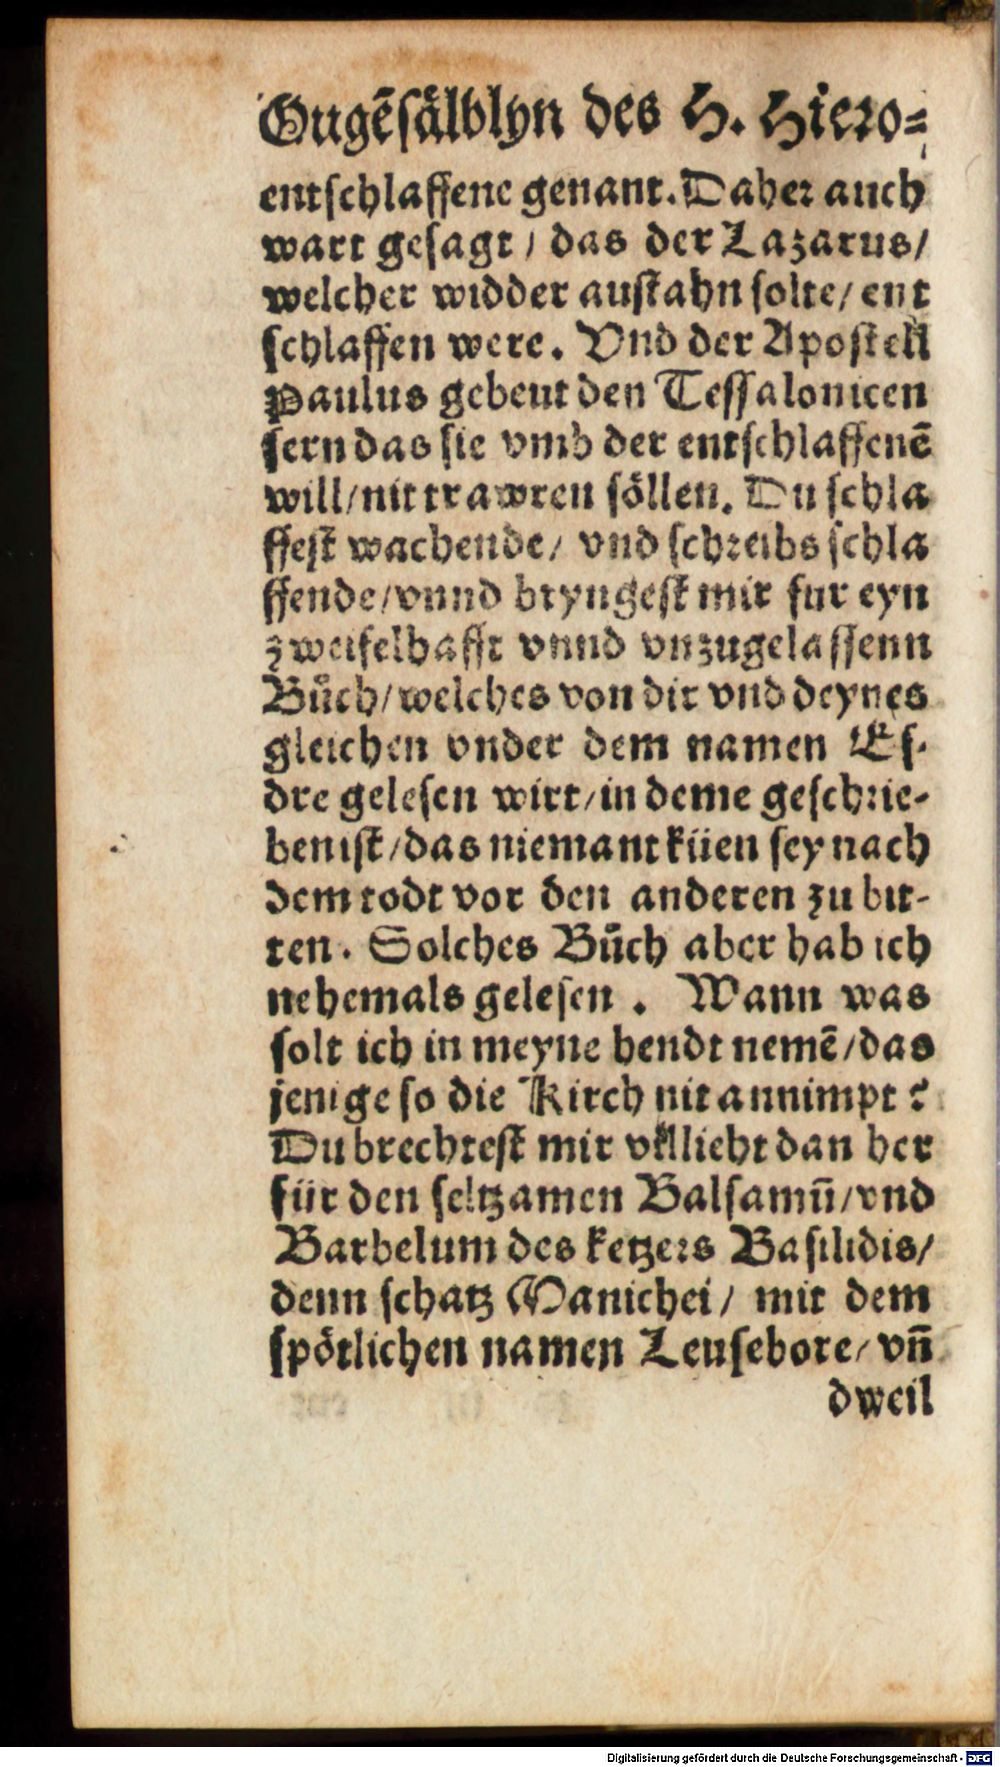 Ougēsälblyn des H. Hiero=
entschlaffene genant. Daher auch
wart gesagt / das der Lazarus /
welcher widder austahn solte / ent
schlaffen were. Vnd der Apostell
Paulus gebeut den Tessalonicen
sern das sie vmb der entschlaffenē
will / nit trawren söllen. Du schla
ffest wachende / vnd schreibs schla
ffende / vnnd bryngest mir fur eyn
zweifelhafft vnnd vnzugelassenn
Bůch / welches von dir vnd deynes
gleichen vnder dem namen Es-
dre gelesen wirt / in deme geschrie-
ben ist / das niemant küen sey nach
dem todt vor den anderen zu bit-
ten. Solches Bůch aber hab ich
nehemals gelesen. Wann was
solt ich in meyne hendt nemē / das
jenige so die Kirch nit annimpt?
Du brechtest mir vllliebt dan her
für den seltzamen Balsamū / vnd
Barbelum des ketzers Basilidis /
denn schatz Manichei / mit dem
spötlichen namen Leusebore / vn̄
dweil
Digitalisierung gefördert durch die Deutsche Forschungsgemeinschaft - DFG